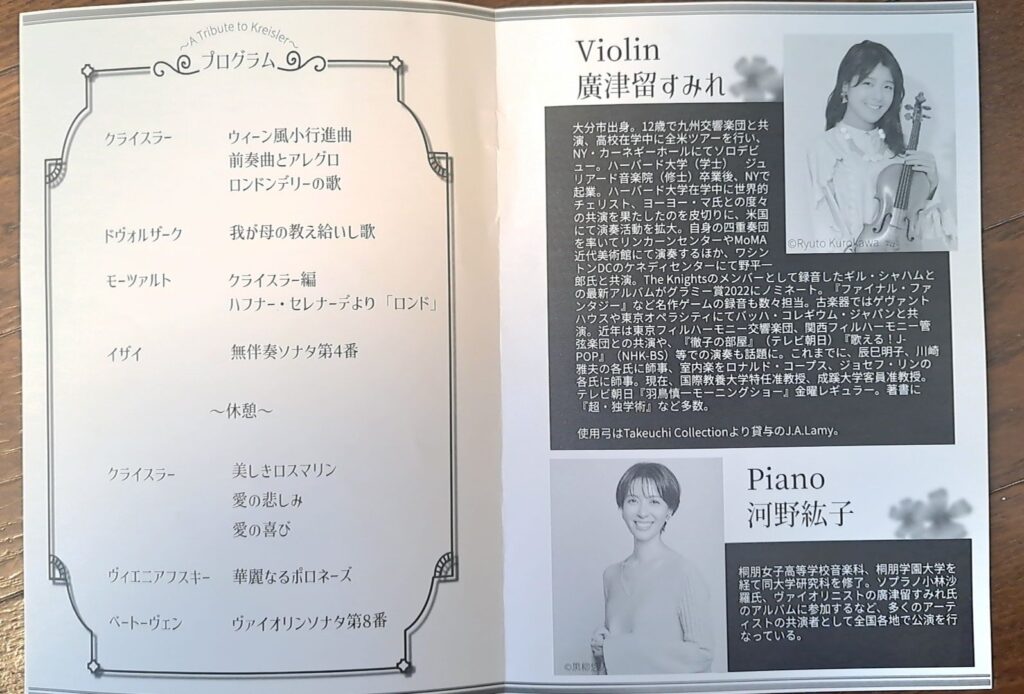 ～A Tribute to Kreisler～
プログラム
クライスラー ウィーン風小行進曲
前奏曲とアレグロ
ロンドンデリーの歌
ドヴォルザーク 我が母の教え給いし歌
モーツァルト クライスラー編
ハフナー・セレナーデより「ロンド」
イザイ 無伴奏ソナタ第4番
～休憩～
クライスラー 美しきロスマリン
愛の悲しみ
愛の喜び
ヴィエニアフスキー 華麗なるポロネーズ
ベートーヴェン ヴァイオリンソナタ第8番
Violin
廣津留すみれ
大分市出身。12歳で九州交響楽団と共
演、高校在学中に全米ツアーを行い、
NY・カーネギーホールにてソロデビ
ュー。ハーバード大学（学士） ジュ
リアード音楽院（修士）卒業後、NYで
起業。ハーバード大学在学中に世界的
チェリスト、ヨーヨー・マ氏との度々
の共演を果たしたのを皮切りに、米国
にて演奏活動を拡大。自身の四重奏団
を率いてリンカーンセンターやMoMA
近代美術館にて演奏するほか、ワシン
トンDCのケネディセンターにて野平一
郎氏と共演。The Knightsのメンバーとして録音したギル・シャハムと
の最新アルバムがグラミー賞2022にノミネート。『ファイナル・ファ
ンタジー』など名作ゲームの録音も数々担当。古楽器ではゲヴァント
ハウスや東京オペラシティにてバッハ・コレギウム・ジャパンと共
演。近年は東京フィルハーモニー交響楽団、関西フィルハーモニー管
弦楽団との共演や、『徹子の部屋』（テレビ朝日）『歌える！J-
POP』（NHK-BS）等での演奏も話題に。これまでに、辰巳明子、川崎
雅夫の各氏に師事、室内楽をロナルド・コープス、ジョセフ・リンの
各氏に師事。現在、国際教養大学特任准教授、成蹊大学客員准教授。
テレビ朝日『羽鳥慎一モーニングショー』金曜レギュラー。著書に
『超・独学術』など多数。
使用弓はTakeuchi Collectionより貸与のJ.A.Lamy。
©Ryuto Kurokawa
Piano
河野紘子
桐朋女子高等学校音楽科、桐朋学園大学を
経て同大学研究科を修了。ソプラノ小林沙
羅氏、ヴァイオリニストの廣津留すみれ氏
のアルバムに参加するなど、多くのアーテ
ィストの共演者として全国各地で公演を行
なっている。